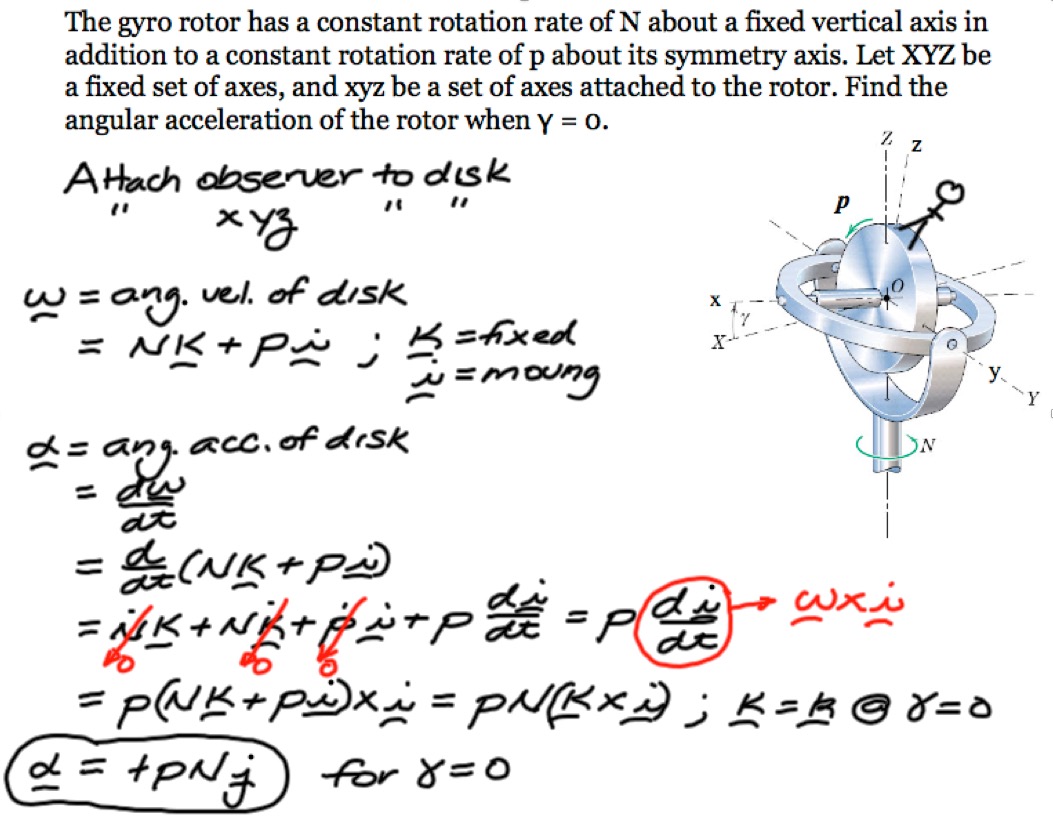 The gyro rotor has a constant rotation rate of N about a fixed vertical axis in
addition to a constant rotation rate of p about its symmetry axis. Let XYZ be
a fixed set of axes, and xyz be a set of axes attached to the rotor. Find the
angular acceleration of the rotor when γ = 0.
Attach observer to disk
" xyz " "
ω = ang. vel. of disk
= NK + pi ; K = fixed
i = moving
α = ang. acc. of disk
= dω/dt
= d/dt (NK + pi)
= ṄK + NK̇ + ṗi + p di/dt = p di/dt → ω×i
0 0 0
= p(NK + pi)×i = pN(K×i) ; K = k @ γ=0
α = +pNj for γ=0
Z z
p
O
x
γ
X
y
Y
N